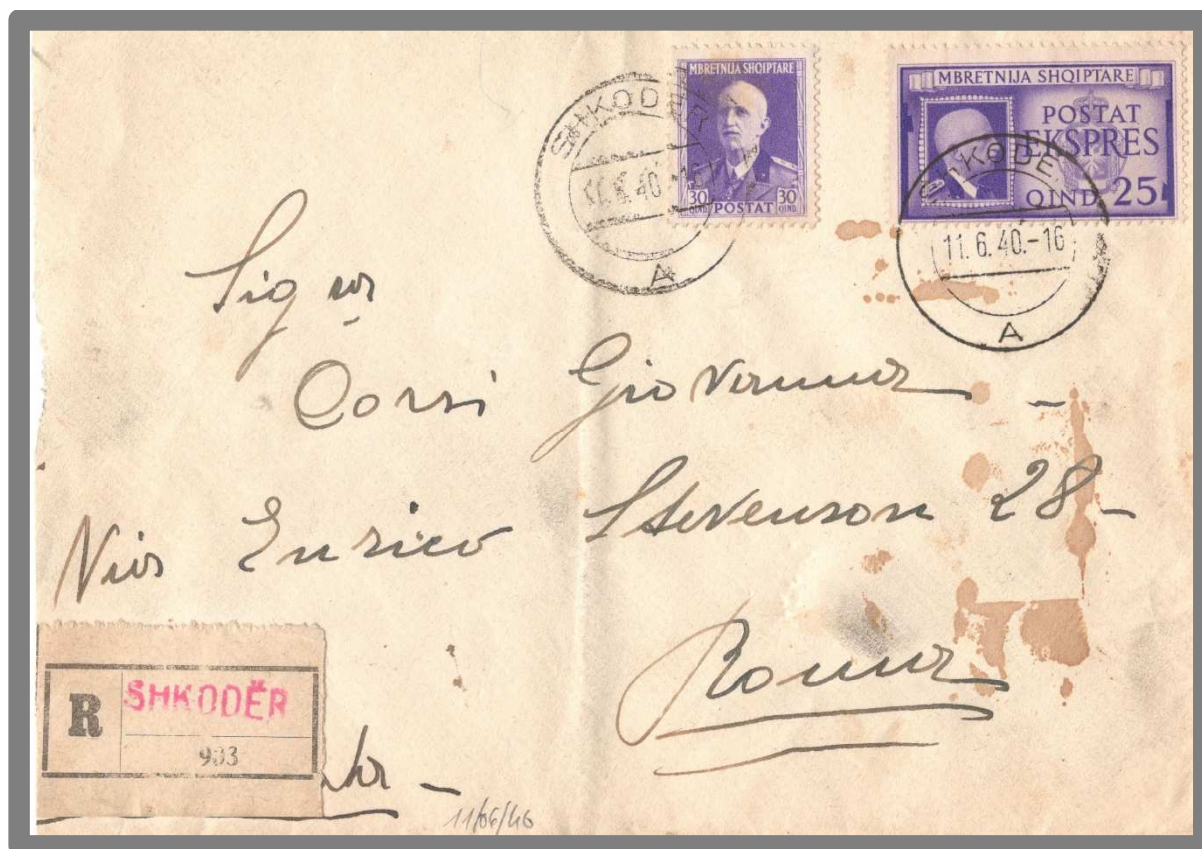 MBRETNIJA SHQIPTARE
30 QIND. POSTAT 30 QIND.
MBRETNIJA SHQIPTARE
POSTAT
EKSPRES
QIND. 25
SHKODËR
11.6.40.-16
A
SHKODËR
11.6.40.-16
A
Corsi Giovanna -
Via Enrico Stevenson 28-
Roma
R
SHKODËR
933
11/06/40